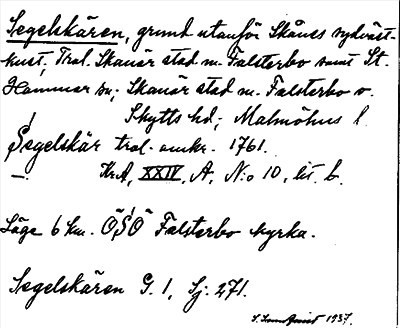 Segelskären, grund utanför Skånes sydväst-
kust, Tral. Skanör stad m. Falsterbo samt St.
Hammar sn; Skanör stad m. Falsterbo o.
Skytts hd; Malmöhus l.
Segelskär tral. omkr. 1761.
KrA, XXIV, A, No 10, lit. b.
Läge 6 km. ÖSÖ Falsterbo kyrka.
Segelskären G. 1, Sj. 271.
1937.